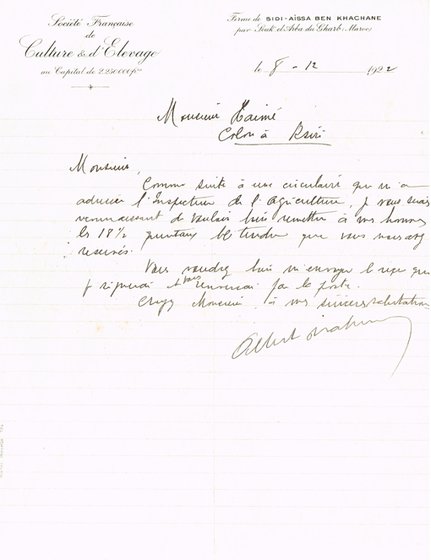 Société Française
de
Culture & d'Elevage
au Capital de 2.250.000 frs
Ferme de SIDI-AÏSSA BEN KHACHANE
par Souk el Arba du Gharb (Maroc)
le 8 - 12 1922
Monsieur
Colon à
Monsieur,
Comme suite à une circulaire que m'a
adressée l'Inspecteur de l'Agriculture, je vous serais
reconnaissant de vouloir bien remettre à vos hommes
les 18 1/2 quintaux blé tendre que vous m'avez
réservés.
Vous voudrez bien m'envoyer le reçu que
je signerai et vous renverrai par la poste.
Croyez Monsieur, à mes sincères salutations
Albert